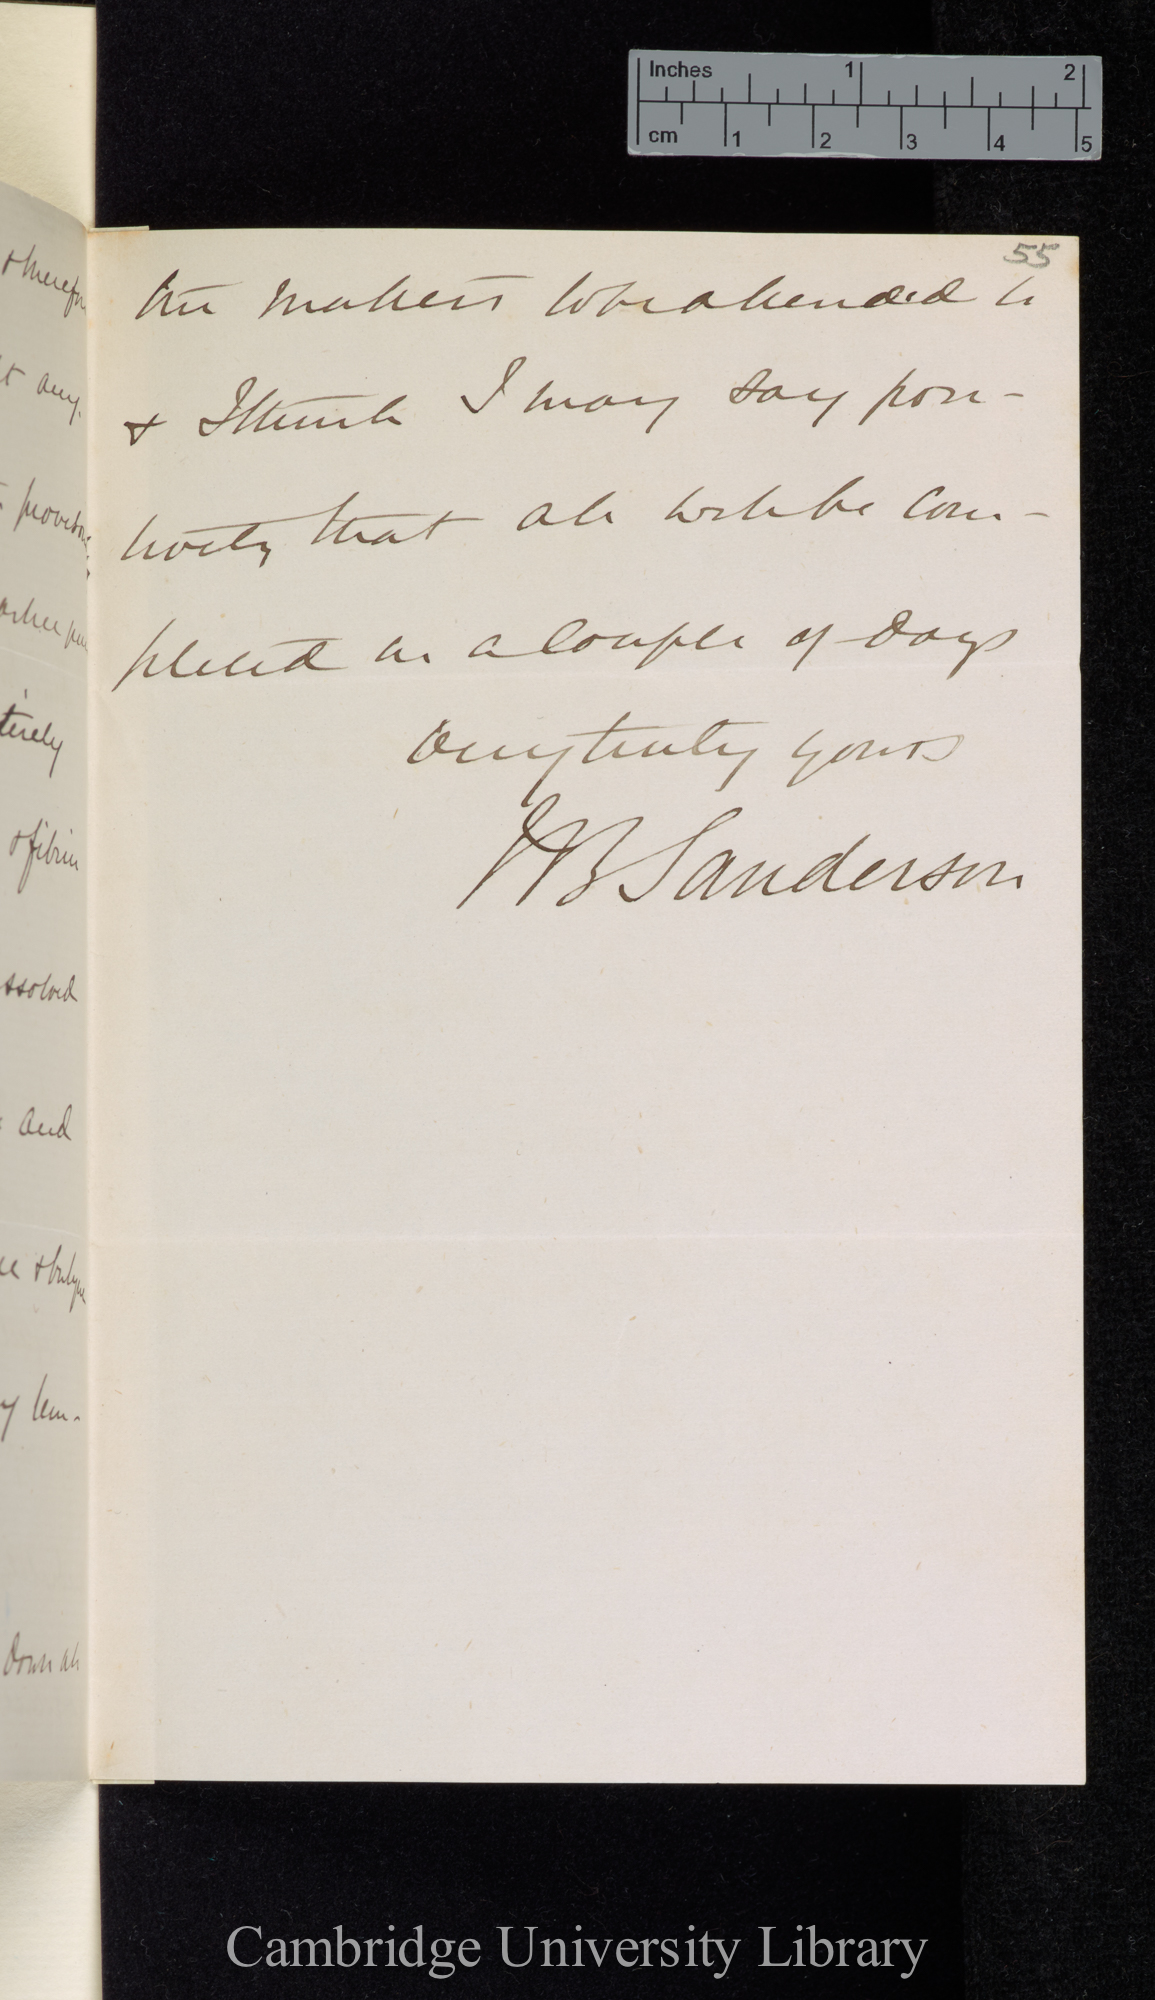 Inches 1 2
cm 1 2 3 4 5
55
the matters to be attended to
& I think I may say posi-
tively that all will be com-
pleted in a couple of days
Very truly yours
JB Sanderson
& therefor
t any.
provision
tirely
& fibrin
ssolved
and
y tem-
Down all
Cambridge University Library